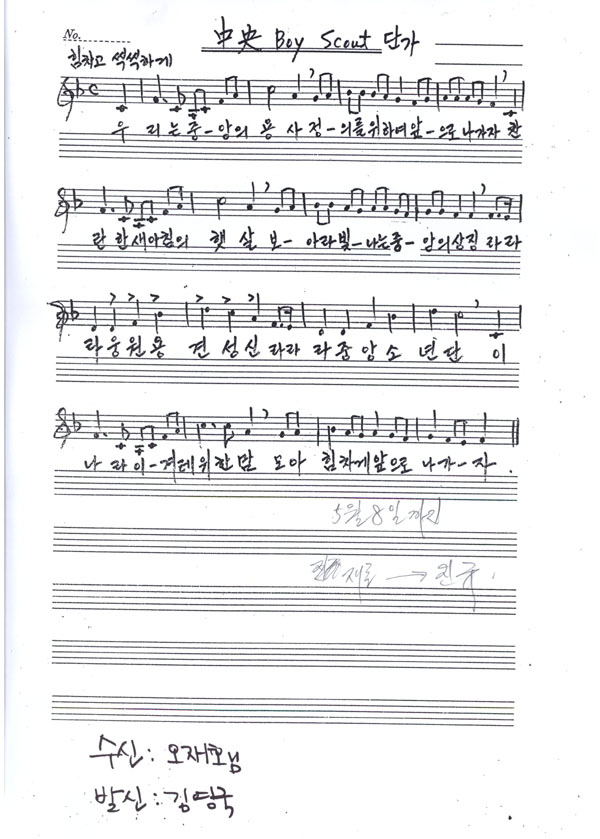 No.
中央 Boy Scout 단가
힘차고 씩씩하게
우 리는중-앙의 용 사 정-의를위하여앞-으로나가자 찬
란 한새아침의 햇 살 보-아라빛-나는중-앙의상징 라라
라웅원용 견 성 신 라라 라중앙소 년 단 이
나 라 이-겨레위한맘 모아 힘차게앞으로 나가-자.
5월8일까지
재료 →
수신: 오재호님
발신: 김영국